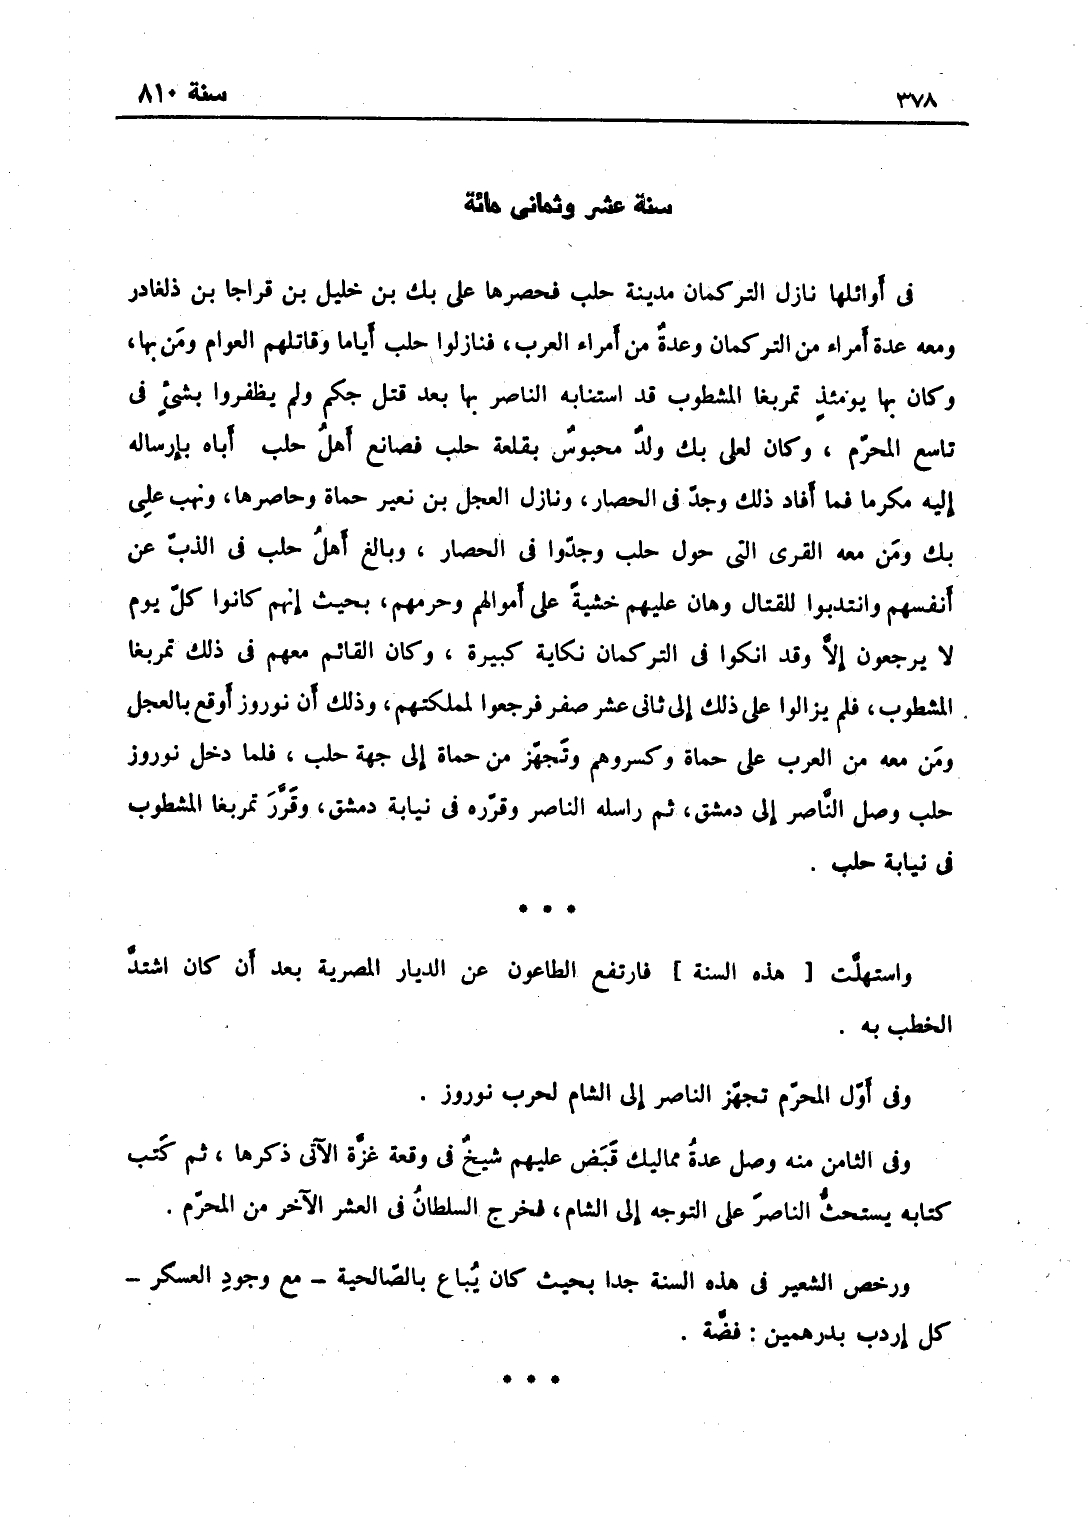 ٣٧٨
سنة ٨١٠
سنة عشر وثمانى مائة
فى أوائلها نازل التركمان مدينة حلب فحصرها على بك بن خليل بن قراجا بن ذلغادر
ومعه عدة أمراء من التركمان وعدةٌ من أمراء العرب ، فنازلوا حلب أياما وقاتلهم العوام ومَن بها،
وكان بها يومئذٍ تمربغا المشطوب قد استنابه الناصر بها بعد قتل جكم ولم يظفروا بشئٍ فى
تاسع المحرّم ، وكان لعلى بك ولدٌ محبوسٌ بقلعة حلب فصانع أهلُ حلب أباه بإرساله
إليه مكرما فما أفاد ذلك وجدّ فى الحصار ، ونازل العجل بن نعير حماة وحاصرها ، ونهب على
بك ومَن معه القرى التى حول حلب وجدّوا فى الحصار ، وبالغ أهلُ حلب فى الذبّ عن
أنفسهم وانتدبوا للقتال وهان عليهم خشيةً على أموالهم وحرمهم ، بحيث إنهم كانوا كلّ يوم
لا يرجعون إلاَّ وقد انكوا فى التركمان نكاية كبيرة ، وكان القائم معهم فى ذلك تمربغا
المشطوب ، فلم يزالوا على ذلك إلى ثانى عشر صفر فرجعوا لمملكتهم ، وذلك أن نوروز أوقع بالعجل
ومَن معه من العرب على حماة وكسروهم وتَجهّز من حماة إلى جهة حلب ، فلما دخل نوروز
حلب وصل النَّاصر إلى دمشق ، ثم راسله الناصر وقرّره فى نيابة دمشق ، وقَرَّرَ تمربغا المشطوب
فى نيابة حلب .
* * *
واستهلَّت [ هذه السنة ] فارتفع الطاعون عن الديار المصرية بعد أن كان اشتدَّ
الخطب به .
وفى أوّل المحرّم تجهّز الناصر إلى الشام لحرب نوروز .
وفى الثامن منه وصل عدةُ مماليك قَبَض عليهم شيخٌ فى وقعة غزَّة الآتى ذكرها ، ثم كَتب
كتابه يستحثُّ الناصرَ على التوجه إلى الشام ، فخرج السلطانُ فى العشر الآخر من المحرّم .
ورخص الشعير فى هذه السنة جدا بحيث كان يُباع بالصّالحية – مع وجودِ العسكر –
كل إردب بدرهمين : فضَّة .
* * *